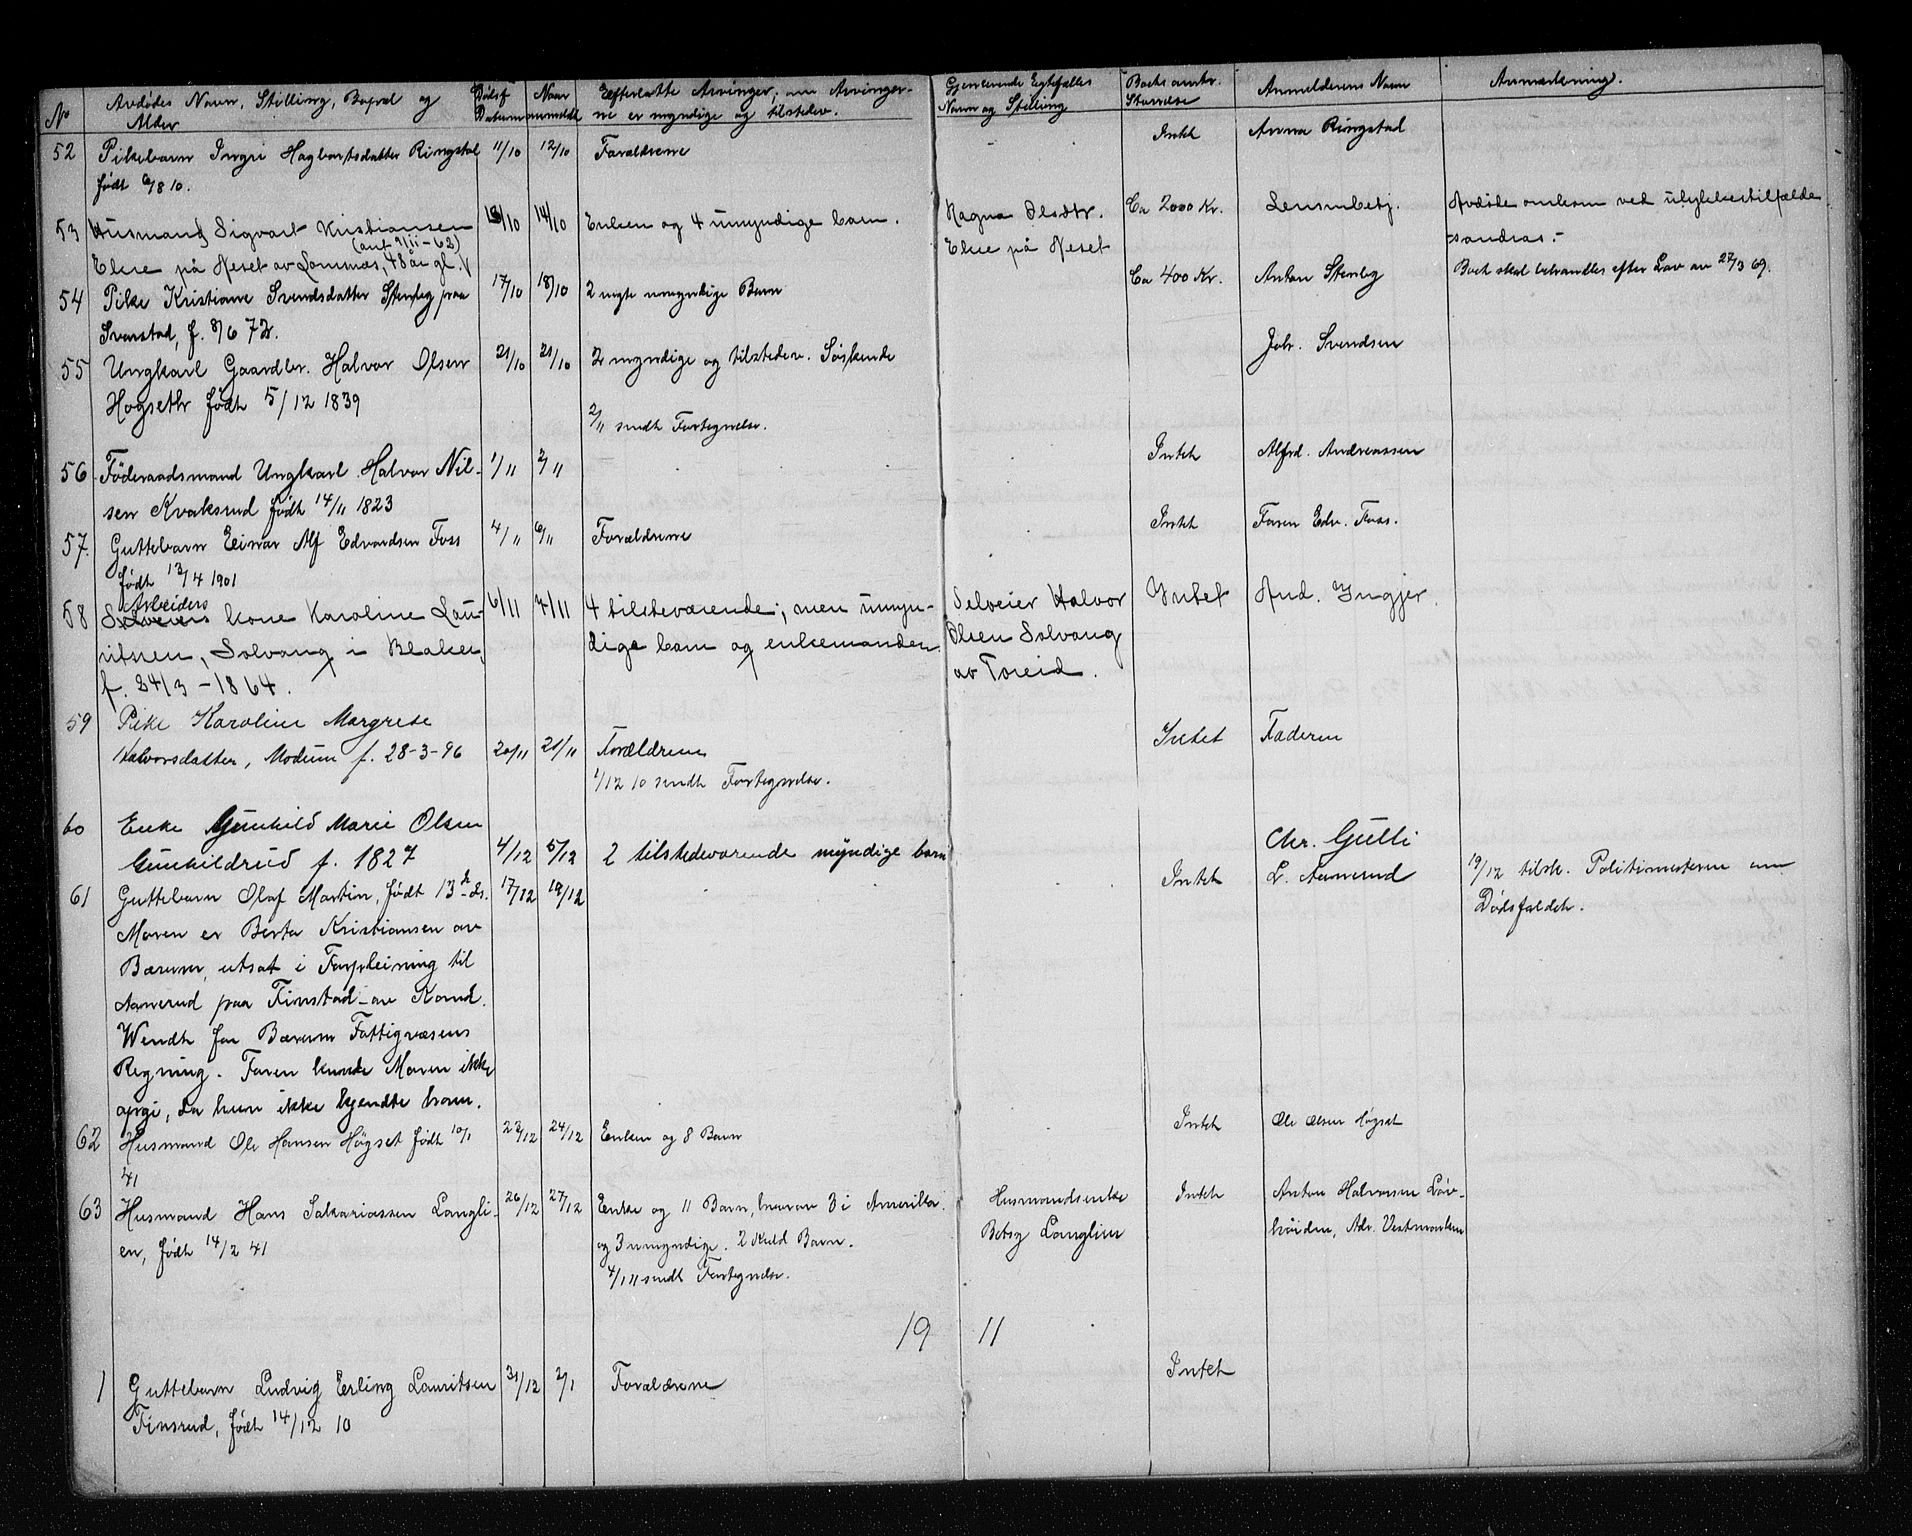 No
Avdødes Navn, Stilling, Bopæl og
Alder
Dødsf
Datum
Naar
anmeldt
Efterlatte Arvinger, om Arvinger-
ne er myndige og tilstede.
Gjenlevende Egtefælles
Navn og Stilling
Boets omtr.
Størrelse
Anmelderens Navn
Anmærkning.
52 Pikebarn Ingri Hagbartsdatter Ringstad 11/10 12/10 Forældrene Intet Anna Ringstad
født 6/8 10.
53 Husmand Sigvart Kristiansen /10 14/10 Enken og 4 umyndige barn. Ragna Olsdtr. Ca 2000 Kr. Lensmbetj. Avdøde omkom ved ulykkestilfælde
(ant 7/11-62)
Ekre på Neset av Sonnæs, 48 år gl. Ekre på Neset
54 Pike Kristiane Svendsdatter Stenbg paa 17/10 18/10 2 uegte umyndige Barn Ca 400 Kr. Anton Stenbg Boet skal behandles efter Lov av 27/3 69.
Svarstad, f. 8/6 72.
55 Ungkarl Gaardbr. Halvor Olsen 21/10 21/10 2 myndige og tilstedev. Søskende Joh. Svendsen
Hogseth født 5/12 1839
2/11 sendt Fortegnelse.
56 Føderaadsmand Ungkarl Halvor Nil- 1/11 2/11 Intet Alfrd. Andreassen
sen Kvaksrud født 14/11 1823
57. Guttebarn Einar Alf Edvardsen Foss 4/11 6/11 Forældrene Intet Faren Edv. Foss.
født 13/4 1901
Arbeiders
58 Selveiers kone Karoline Lau- 6/11 7/11 4 tilsteværende, men umyn- Selveier Halvor Intet And. Ingjer.
ritsen, Solvang i Blaker, dige barn og enkemanden. Olsen Solvang
f. 24/3 - 1864. av Toreid.
59 Pike Karoline Margrete Intet Faderen
Halvorsdatter, Modum f. 28-3-96 20/11 21/11 Forældrene
1/12 10 sendt Fortegnelse.
60 Enke Gunhild Marie Olsen
Gunhildrud f. 1827 4/12 5/12 2 tilstedeværende myndige barn Chr. Gulli
61 Guttebarn Olaf Martin, født 13de ds. 17/12 19/12 Intet L. Aanerud 19/12 tilsk. Politimesteren om
Dødsfaldet.
Moren er Berta Kristiansen av
Bærum, utsat i Forpleining til
Aanerud paa Finstad av Komd.
Wendt for Bærum Fattigvæsens
Regning. Faren kunde Moren ikke
opgi, da hun ikke kjendte ham.
62 Husmand Ole Hansen Høgset født 10/1 22/12 24/12 Enken og 8 Barn Intet Ole Olsen Høgset
41
63 Husmand Hans Sakariassen Langli- 26/12 27/12 Enke og 11 Barn, hvorav 3 i Amerika. Husmandsenke Intet Anton Halvorsen Løv-
en, født 14/2 41 og 3 umyndige. 2 Kuld Barn. Betsy Langlien høiden, Adr. Vestmarken
4/1 11 sendt Fortegnelse.
19 11
1 Guttebarn Ludvig Erling Lauritsen 31/12 2/1 Forældrene Intet
Finsrud, født 14/12 10